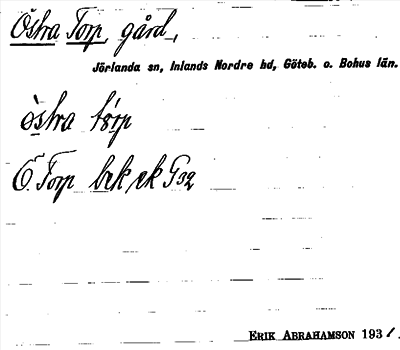 Östra Torp, gård,
Jörlanda sn, Inlands Nordre hd, Göteb. o. Bohus län.
òstra tórp
Ö. Torp bek ek G32
ERIK ABRAHAMSON 1931.